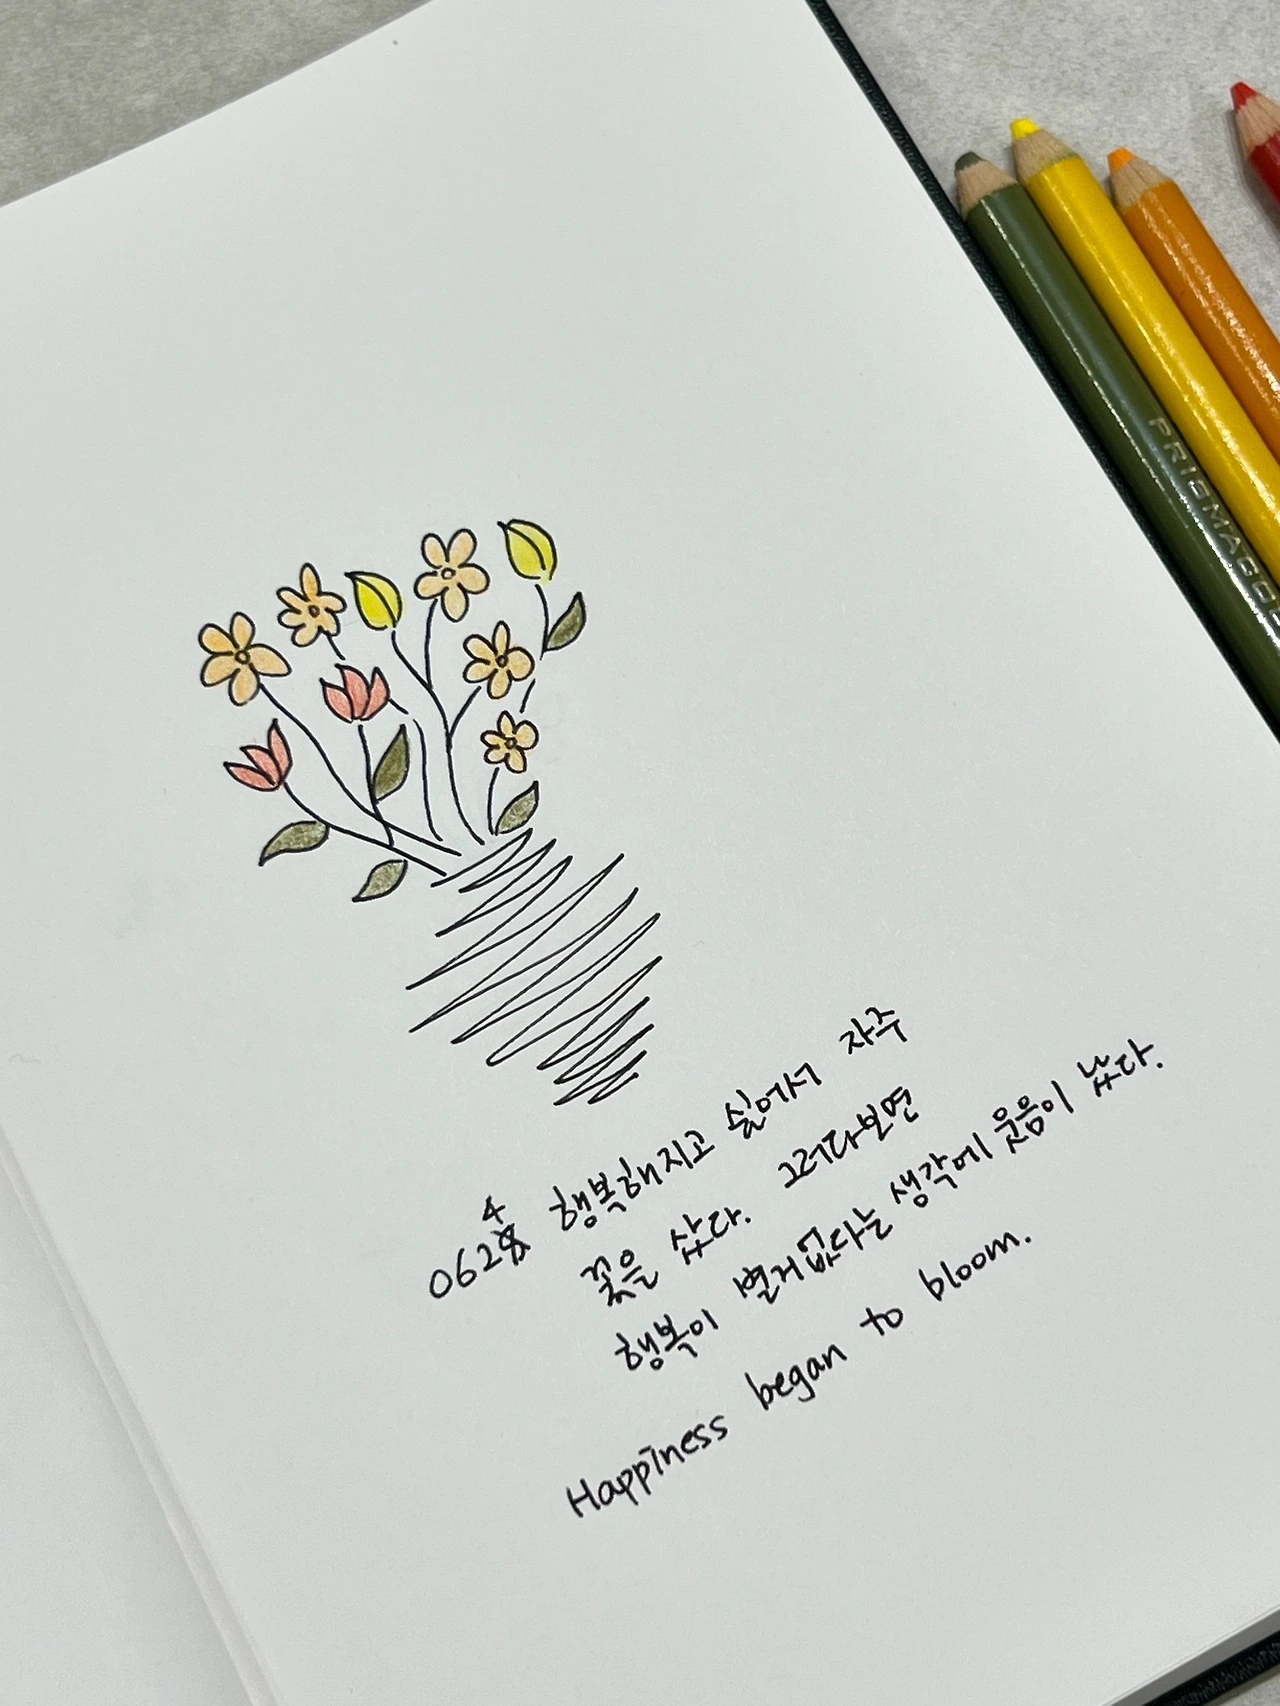 0624 행복해지고 싶어서 자주
꽃을 샀다. 그러다보면
행복이 별거없다는 생각에 웃음이 났다.
Happiness began to bloom.
PRISMACOLO